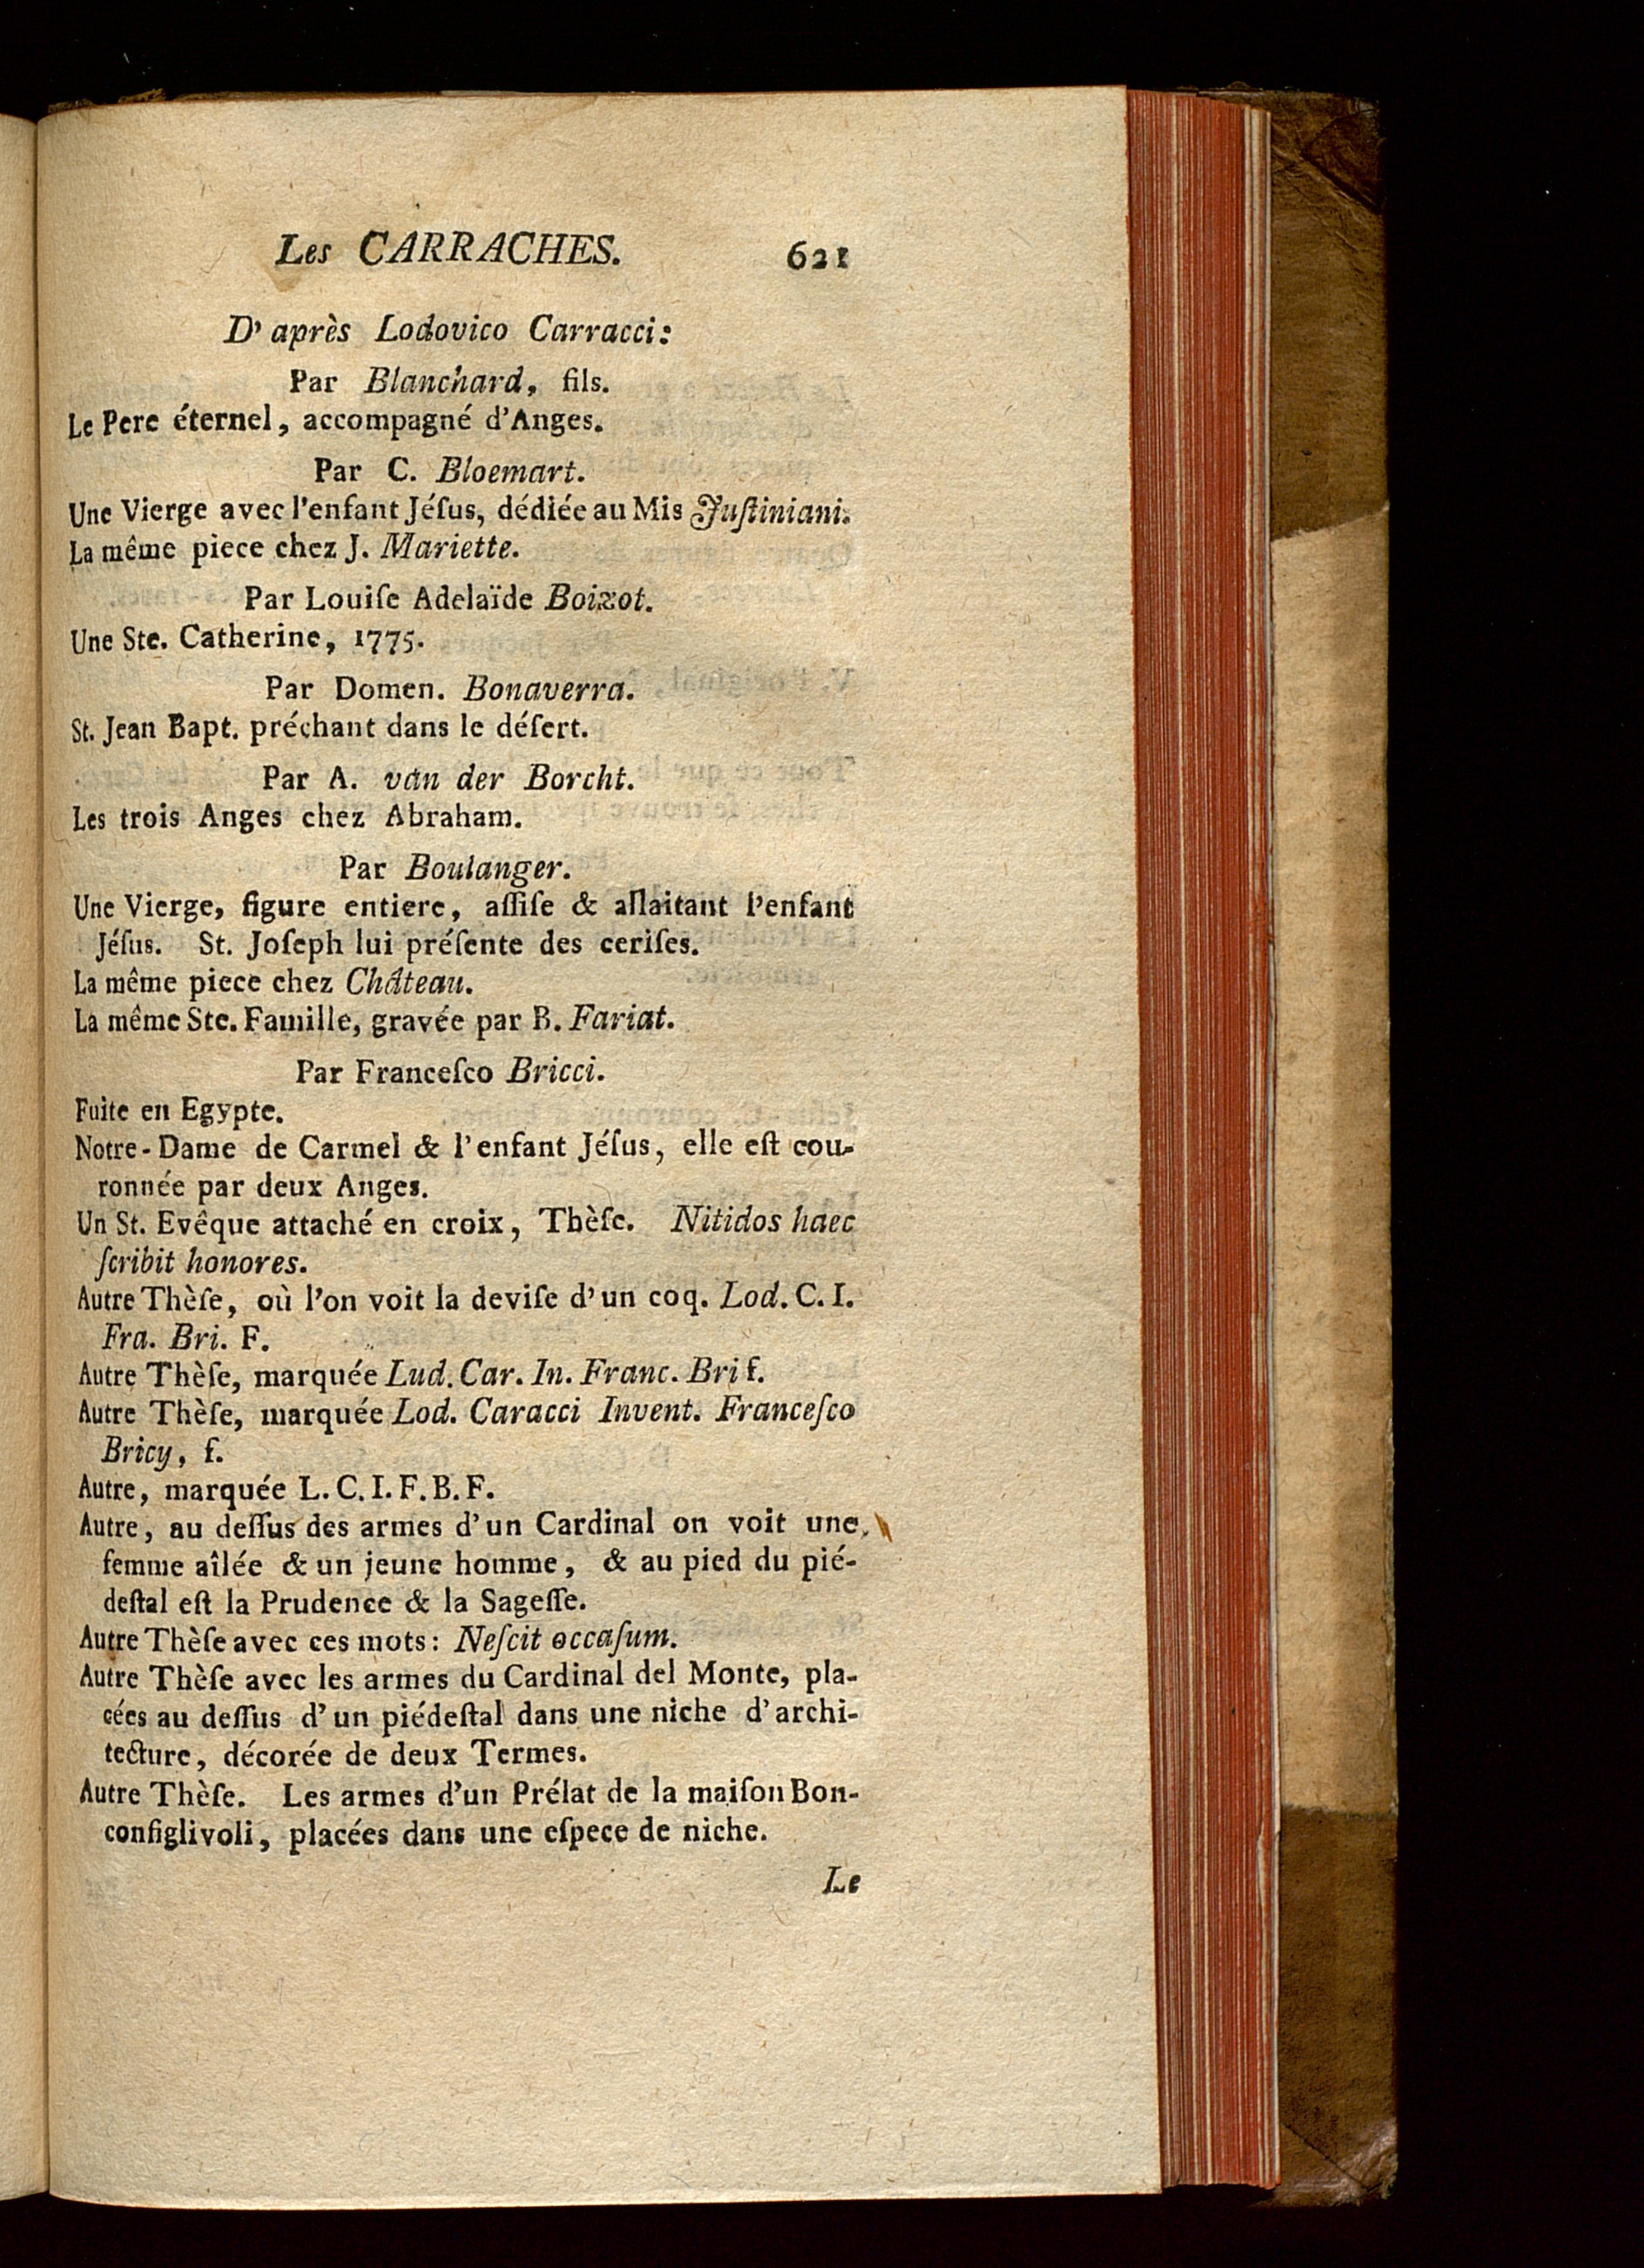 Les CARRACHES. 621
D' après Lodovico Carracci:
Par Blanchard, fils.
Le Pere éternel, accompagné d'Anges.
Par C. Bloemart.
Une Vierge avec l'enfant Jéſus, dédiée au Mis Juſtiniani.
La même piece chez J. Mariette.
Par Louiſe Adelaïde Boizot.
Une Ste. Catherine, 1775.
Par Domen. Bonaverra.
St. Jean Bapt. préchant dans le déſert.
Par A. van der Borcht.
Les trois Anges chez Abraham.
Par Boulanger.
Une Vierge, figure entiere, aſſiſe & allaitant l'enfant
Jéſus. St. Joſeph lui préſente des ceriſes.
La même piece chez Château.
La même Ste. Famille, gravée par B. Fariat.
Par Franceſco Bricci.
Fuite en Egypte.
Notre-Dame de Carmel & l'enfant Jéſus, elle eſt cou-
ronnée par deux Anges.
Un St. Evêque attaché en croix, Thèſe. Nitidos haec
ſcribit honores.
Autre Thèſe, où l'on voit la deviſe d'un coq. Lod. C. I.
Fra. Bri. F.
Autre Thèſe, marquée Lud. Car. In. Franc. Bri f.
Autre Thèſe, marquée Lod. Caracci Invent. Franceſco
Bricy, f.
Autre, marquée L. C. I. F. B. F.
Autre, au deſſus des armes d'un Cardinal on voit une
femme aîlée & un jeune homme, & au pied du pié-
deſtal eſt la Prudence & la Sageſſe.
Autre Thèſe avec ces mots: Neſcit occaſum.
Autre Thèſe avec les armes du Cardinal del Monte, pla-
cées au deſſus d'un piédeſtal dans une niche d'archi-
tecture, décorée de deux Termes.
Autre Thèſe. Les armes d'un Prélat de la maiſon Bon-
configlivoli, placées dans une eſpece de niche.
Le